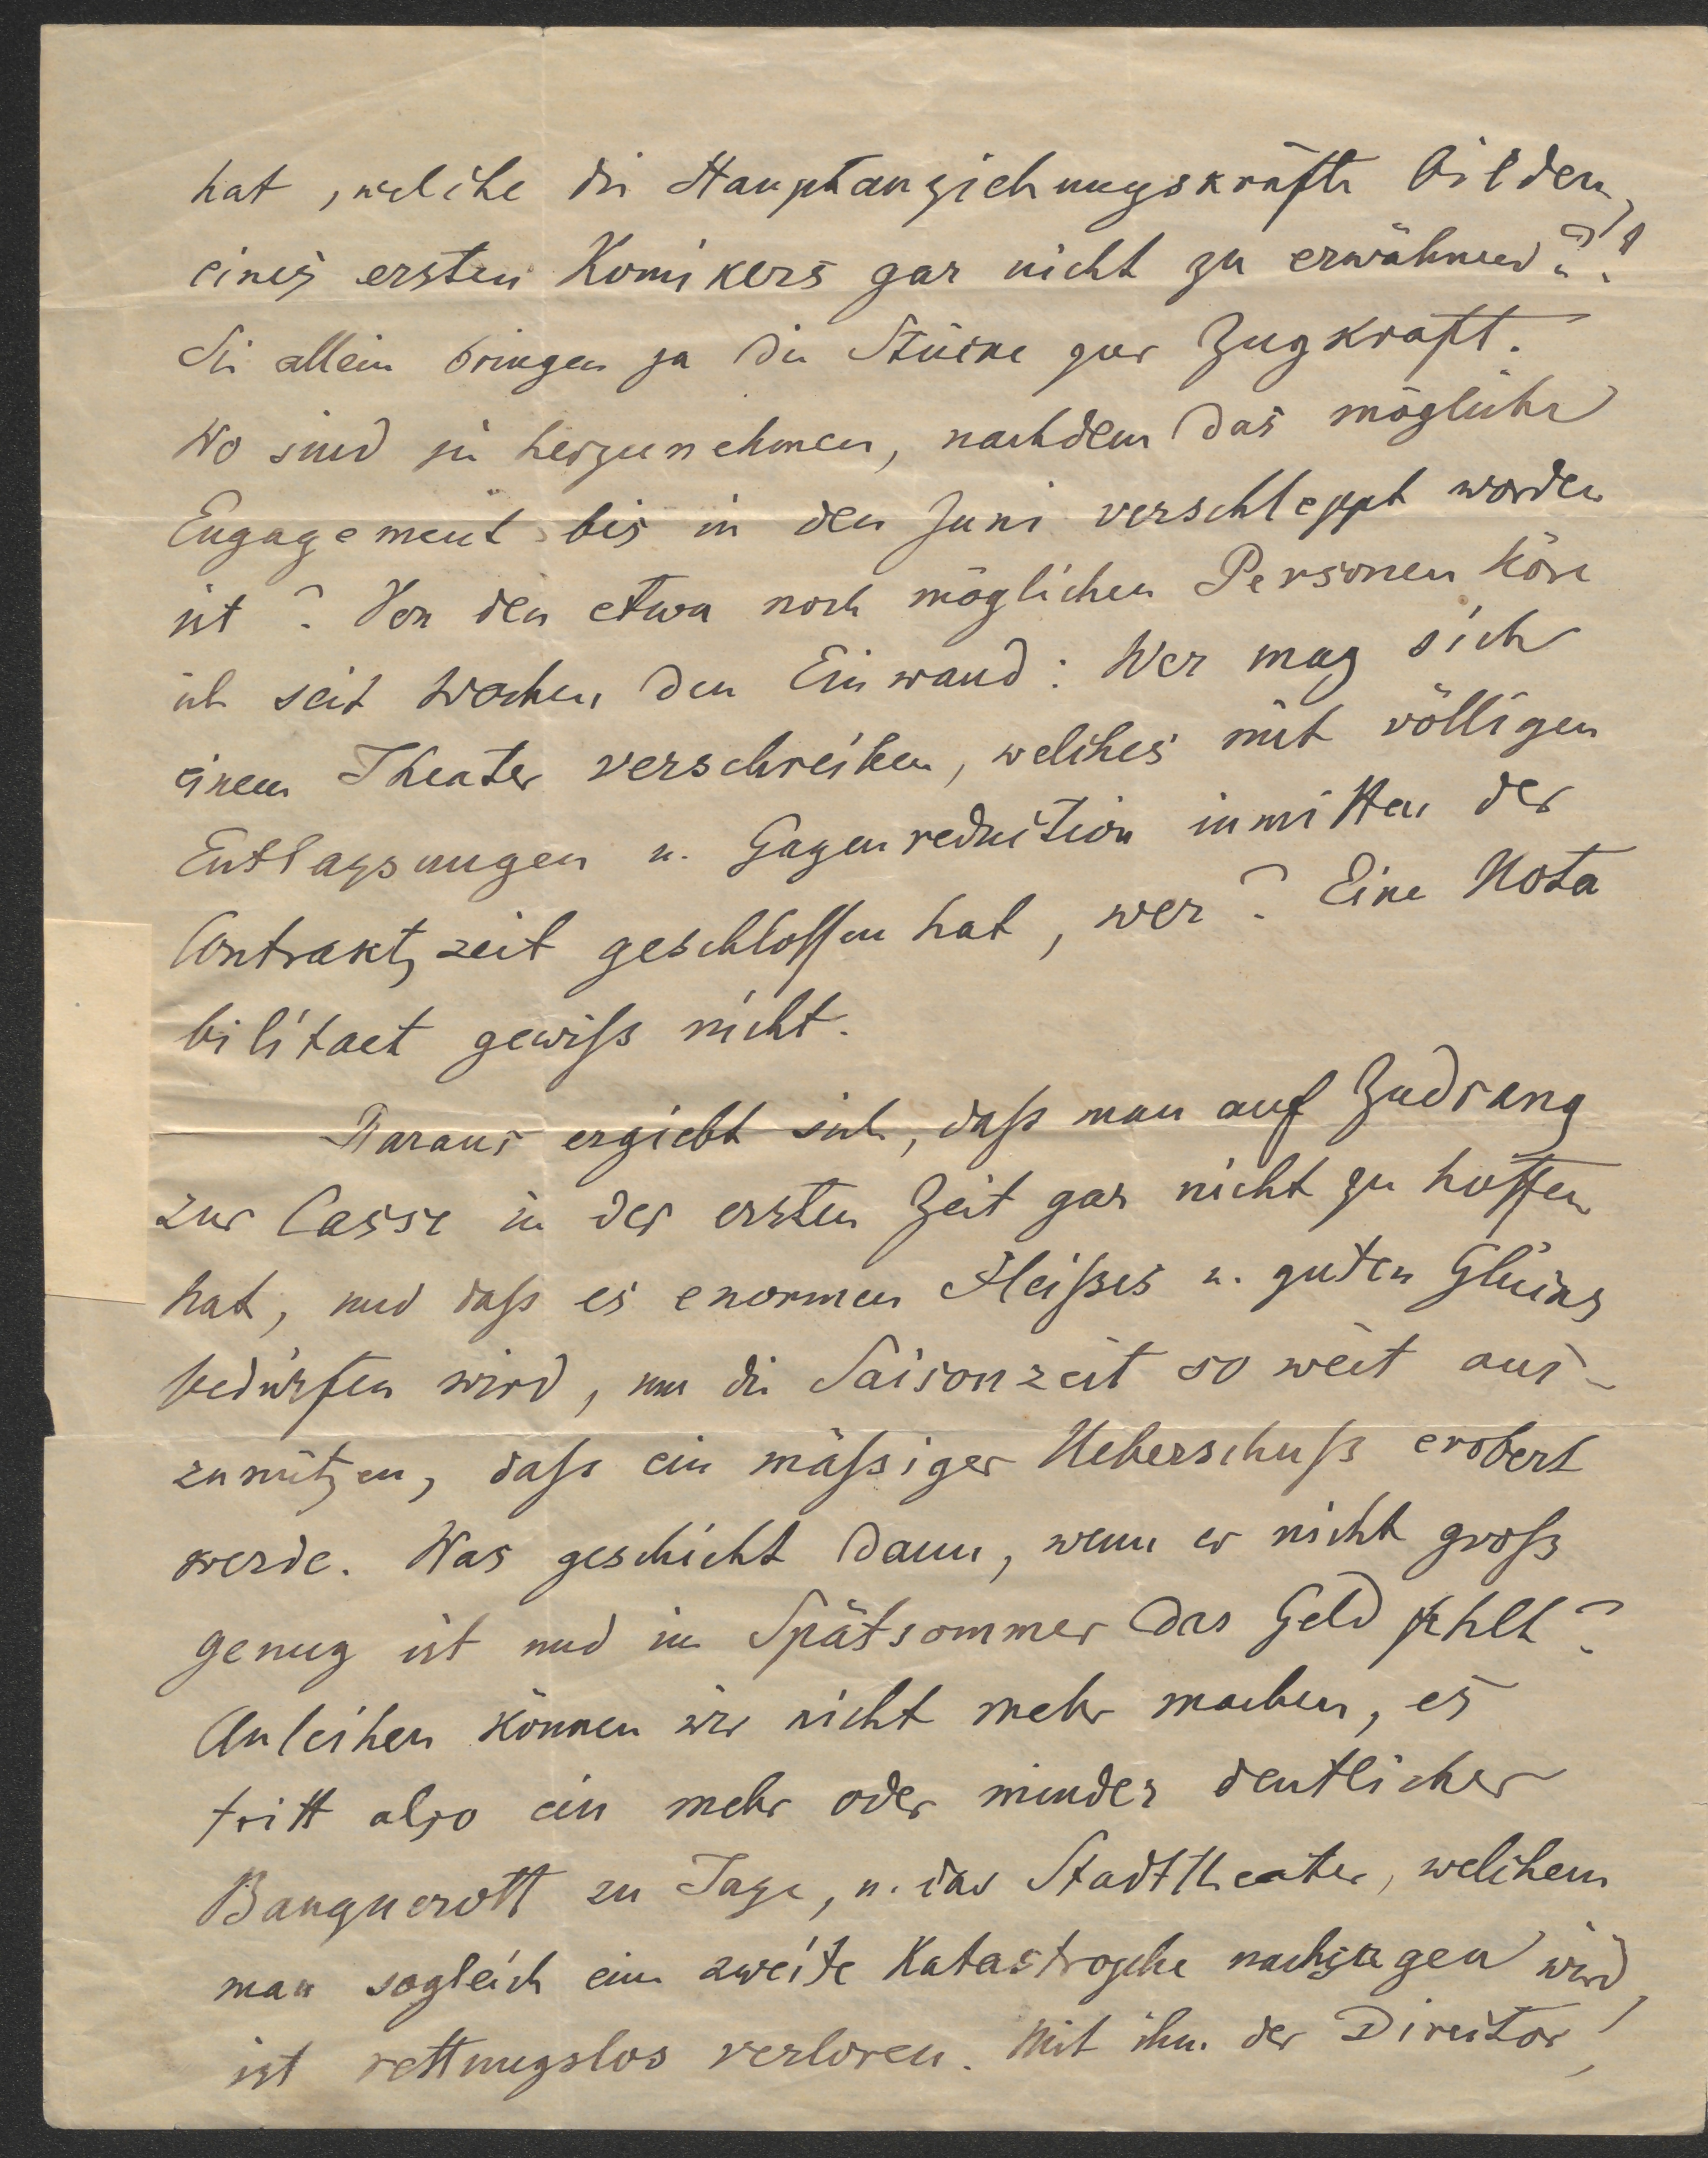 hat, welche die Hauptanziehungskräfte bilden,
eines ersten Komikers gar nicht zu erwähnen??
Sie allein bringen ja die Stücke zur Zugkraft.
Wo sind sie herzunehmen, nachdem das mögliche
Engagement bis in den Juni verschleppt worden
ist? Von den etwa noch möglichen Personen höre
ich seit Wochen den Einwand: Wer mag sich
einem Theater verschreiben, welches mit völligen
Entlassungen u. Gagenreduction inmitten der
Contraktzeit geschlossen hat, wer? Eine Nota
bilitaet gewiß nicht.
Daraus ergiebt sich, daß man auf Zudrang
zur Casse in der ersten Zeit gar nicht zu hoffen
hat, und daß es enormen Fleißes u. guten Glücks
bedürfen wird, um die Saisonzeit so weit aus-
zunützen, daß ein mäßiger Ueberschuß erobert
werde. Was geschieht dann, wenn er nicht groß
genug ist und im Spätsommer das Geld fehlt?
Anleihen können wir nicht mehr machen, es
tritt also ein mehr oder minder deutlicher
Banquerott zu Tage, u. das Stadttheater, welchem
man sogleich eine zweite Katastrophe nachsagen wird,
ist rettungslos verloren. Mit ihm der Director!